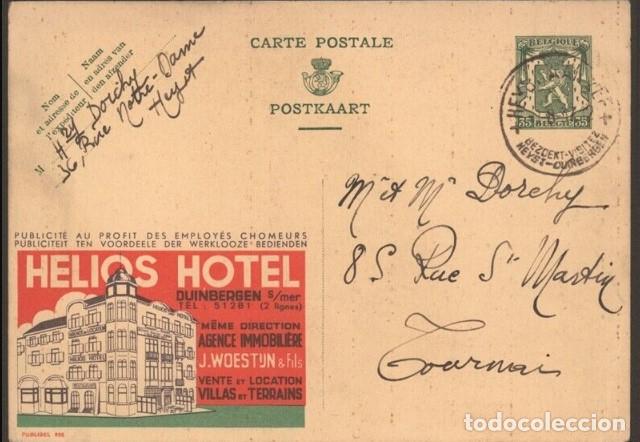 Nom
et adresse de
l'expéditeur
Naam
en adres van
den afzender
M
H
Dorchy
36, Rue Notre-Dame
Heyst
CARTE POSTALE
POSTKAART
BELGIQUE
35 BELGIE 35
HEYST
BEZOEKT-VISITEZ
HEYST-DUINBERGEN
Mr et Me Dorchy
85 Rue St Martin
Tournai
PUBLICITÉ AU PROFIT DES EMPLOYÉS CHOMEURS
PUBLICITEIT TEN VOORDEELE DER WERKLOOZE BEDIENDEN
HELIOS HOTEL
DUINBERGEN s/mer
TEL: 51281 (2 lignes)
MÊME DIRECTION
AGENCE IMMOBILIÈRE
J.WOESTIJN & fils
VENTE ET LOCATION
VILLAS ET TERRAINS
HELIOS HOTEL
PUBLIBEL
todocoleccion